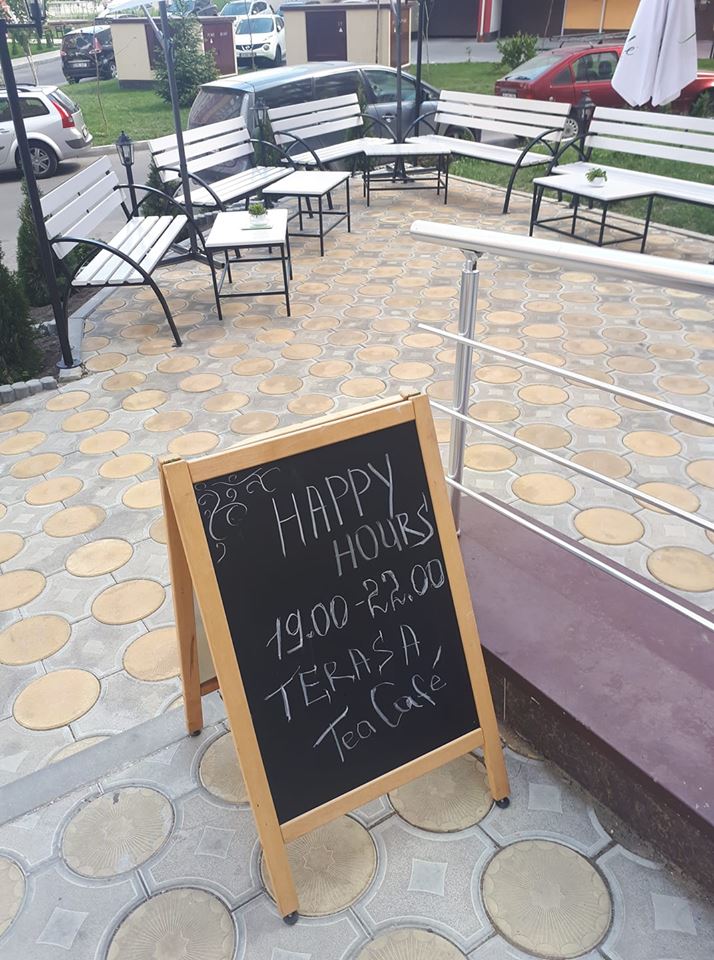 HAPPY
HOURS
19.00-22.00
TERASA
Tea Café